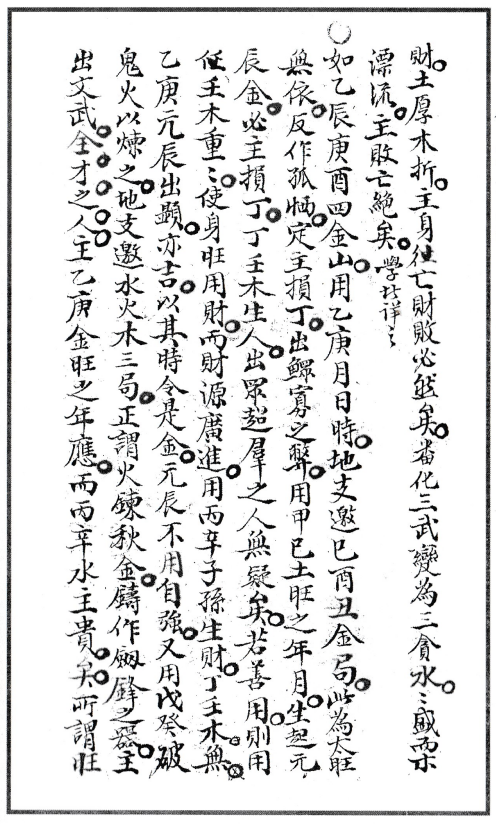 財土厚木折主身徃亡財敗必然矣畨化三武變為三貪水〻盛而木
漂流主敗亡絕矣學者詳之
如乙辰庚酉四金山用乙庚月日時地支邀巳酉丑金局此為太旺
無依反作孤恓定主損丁出鰥寡之弊用甲己土旺之年月生起元
辰金必主損丁丁壬木生人出眾超羣之人無疑矣若善用則用
任壬木重〻使身旺用財而財源廣進用丙辛子孫生財丁壬木無
乙庚元辰出顯亦吉以其時令是金元辰不用自強又用戊癸破
鬼火以煉之地支邀水火木三局正謂火鍊秋金鑄作劒鋒之器主
出文武全才之人主乙庚金旺之年應而丙辛水主貴矣所謂旺